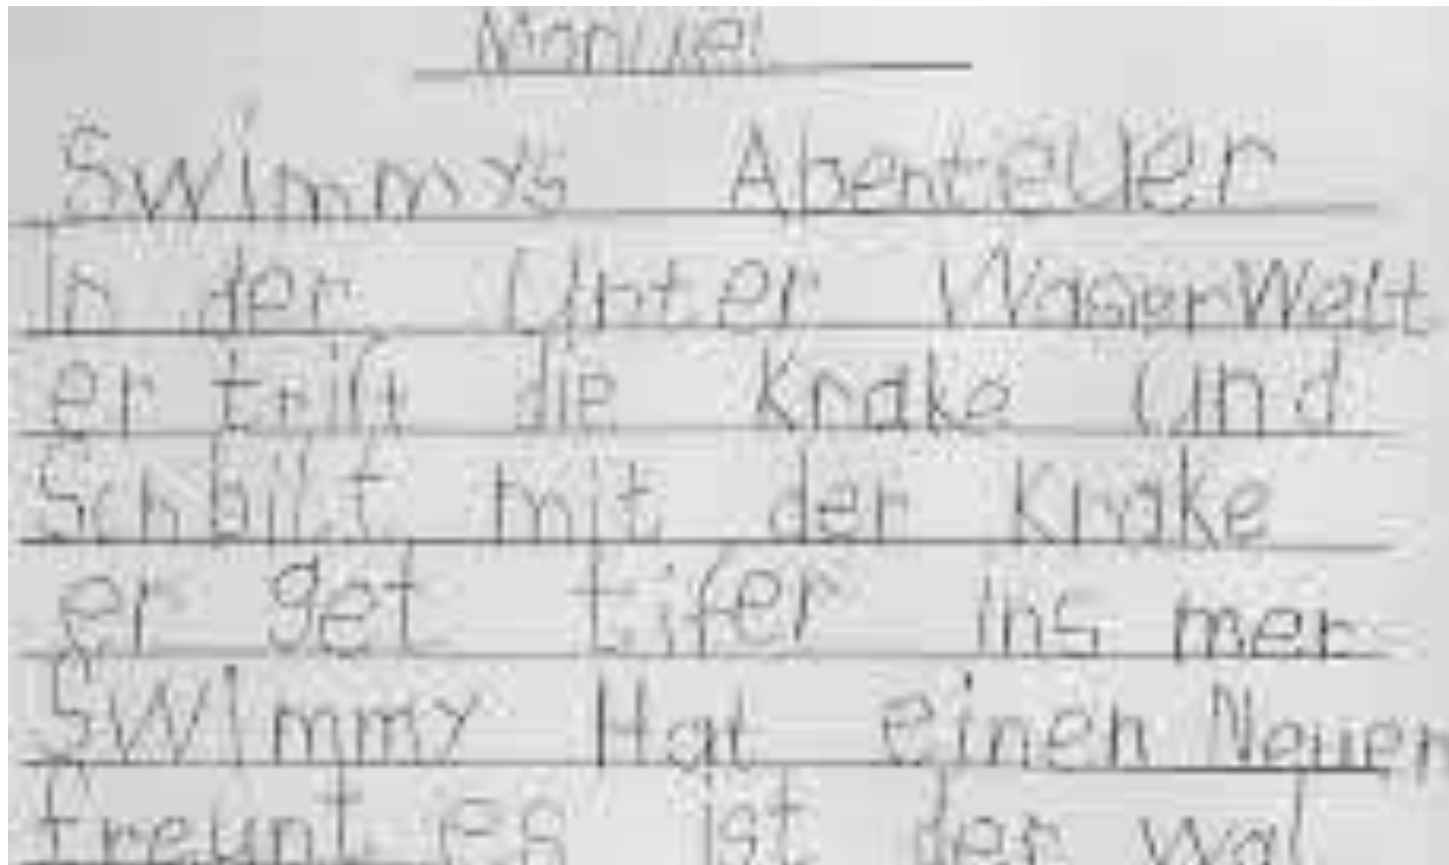 Manuel
Swimmys Abenteuer
In der Unter WasserWelt
er trift die Krake Und
Schbilt mit der Krake
er get tifer ins mer
Swimmy Hat einen Neuen
freunt es ist der wal